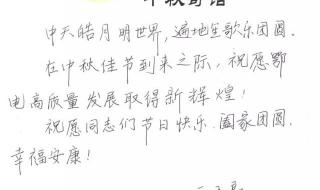 中秋寄语
中天皓月明世界，遍地笙歌乐团圆。
在中秋佳节到来之际，祝愿鄂
电高质量发展取得新辉煌！
祝愿同志们节日快乐、阖家团圆、
幸福安康！